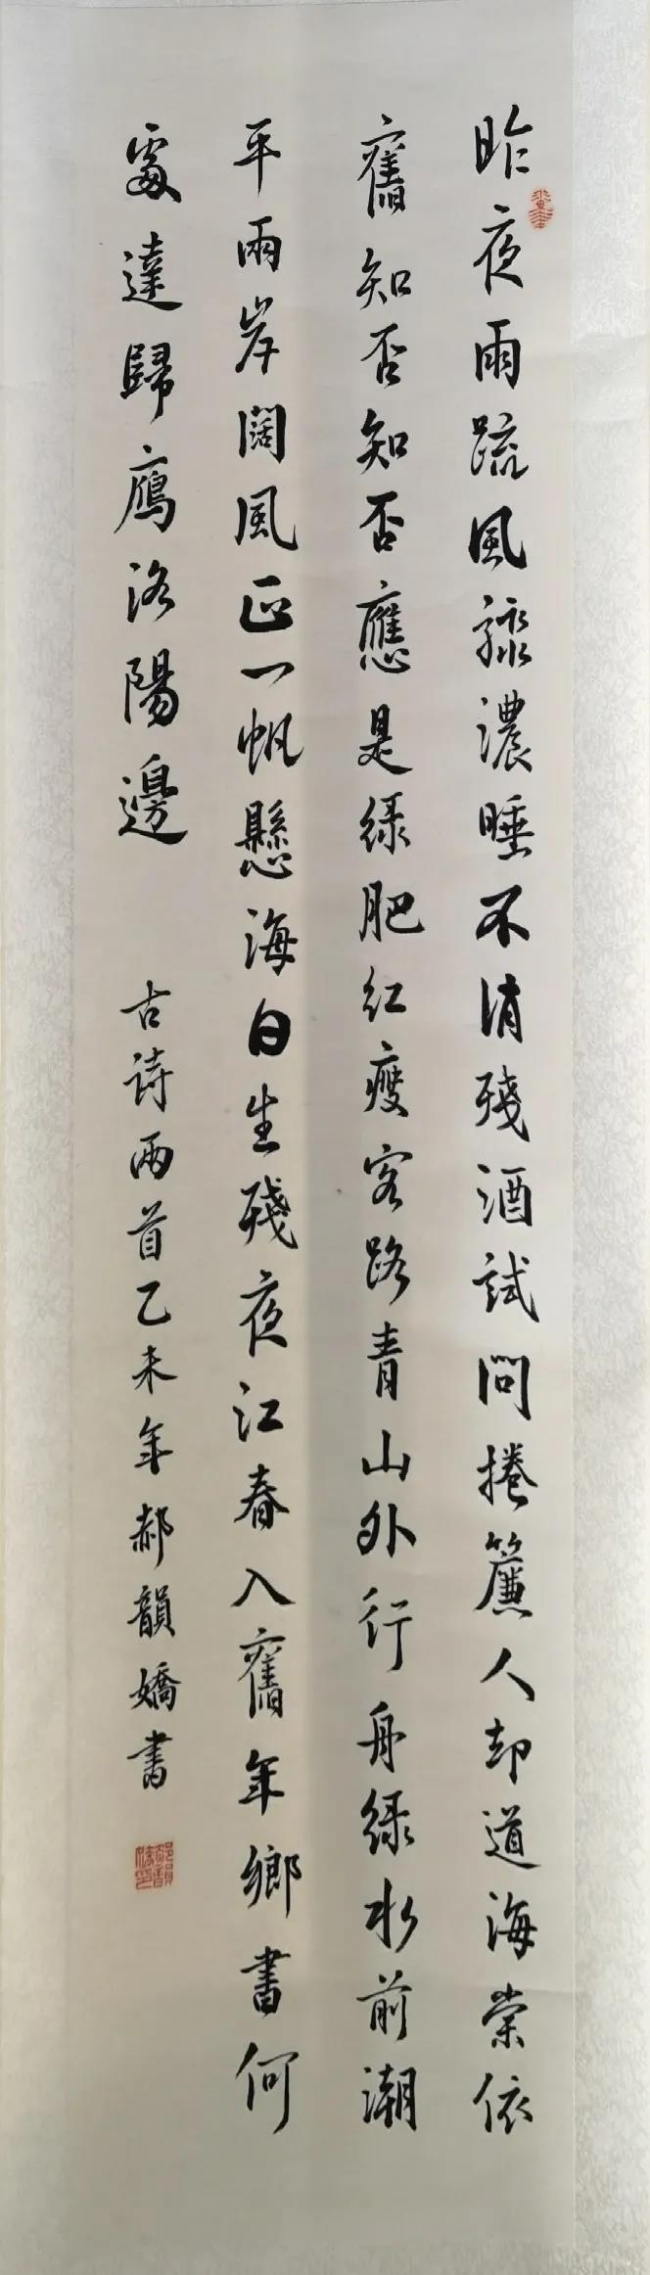 昨夜雨疏風驟濃睡不消殘酒試問捲簾人却道海棠依
舊知否知否應是緑肥紅瘦客路青山外行舟緑水前潮
平兩岸闊風正一帆懸海日生殘夜江春入舊年鄉書何
處達歸鴈洛陽邊 古詩兩首乙未年郝韻嬌書